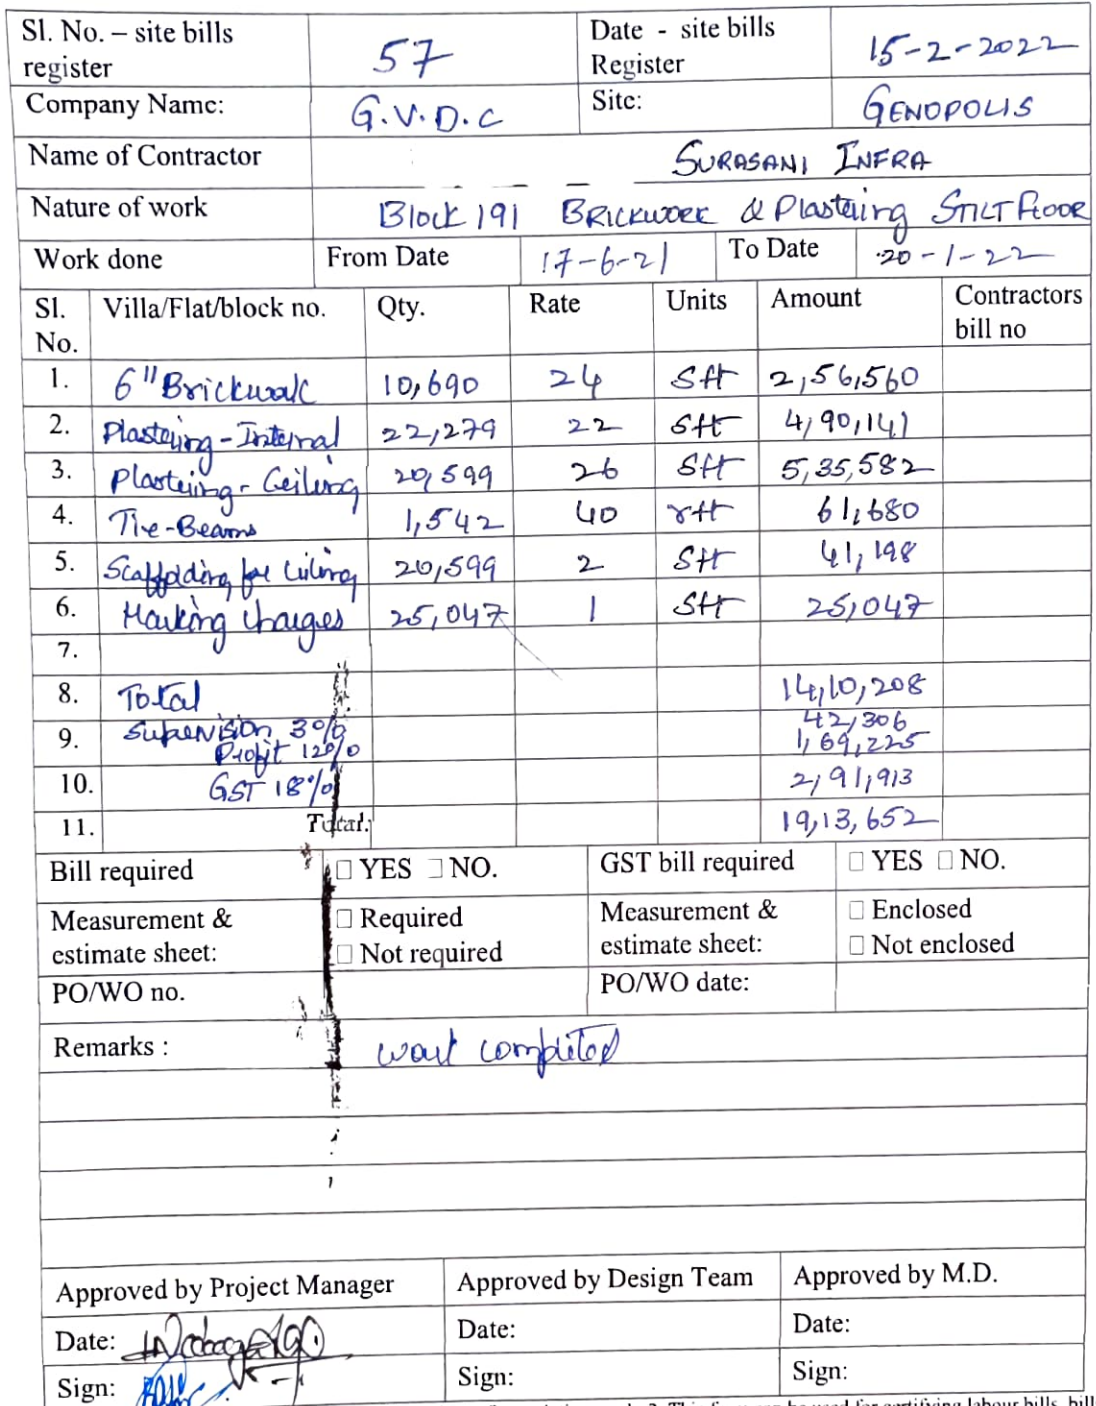 Sl. No. – site bills register 57 Date - site bills Register 15-2-2022
Company Name: G.V.D.C Site: GENOPOLIS
Name of Contractor SURASANI INFRA
Nature of work Block 191 BRICKWORK & Plastering STILT FLOOR
Work done From Date 17-6-21 To Date 20-1-22
Sl. No. Villa/Flat/block no. Qty. Rate Units Amount Contractors bill no
1. 6" Brickwalk 10,690 24 Sft 2,56,560
2. Plastering-Internal 22,279 22 Sft 4,90,141
3. Plastering-Ceiling 20,599 26 Sft 5,35,582
4. Tie-Beams 1,542 40 rft 61,680
5. Scaffolding for Ceiling 20,599 2 Sft 41,198
6. Marking charges 25,047 1 Sft 25,047
7.
8. Total 14,10,208
9. Supervision 3% 42,306
Profit 12% 1,69,225
10. GST 18% 2,91,913
11. Total: 19,13,652
Bill required □ YES □ NO. GST bill required □ YES □ NO.
Measurement & estimate sheet: □ Required □ Not required Measurement & estimate sheet: □ Enclosed □ Not enclosed
PO/WO no. PO/WO date:
Remarks : work completed
Approved by Project Manager Approved by Design Team Approved by M.D.
Date: Date: Date:
Sign: Sign: Sign: